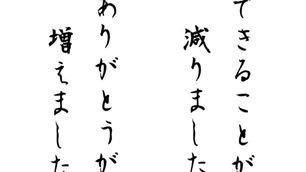 できることが
減りました
ありがとうが
増えました